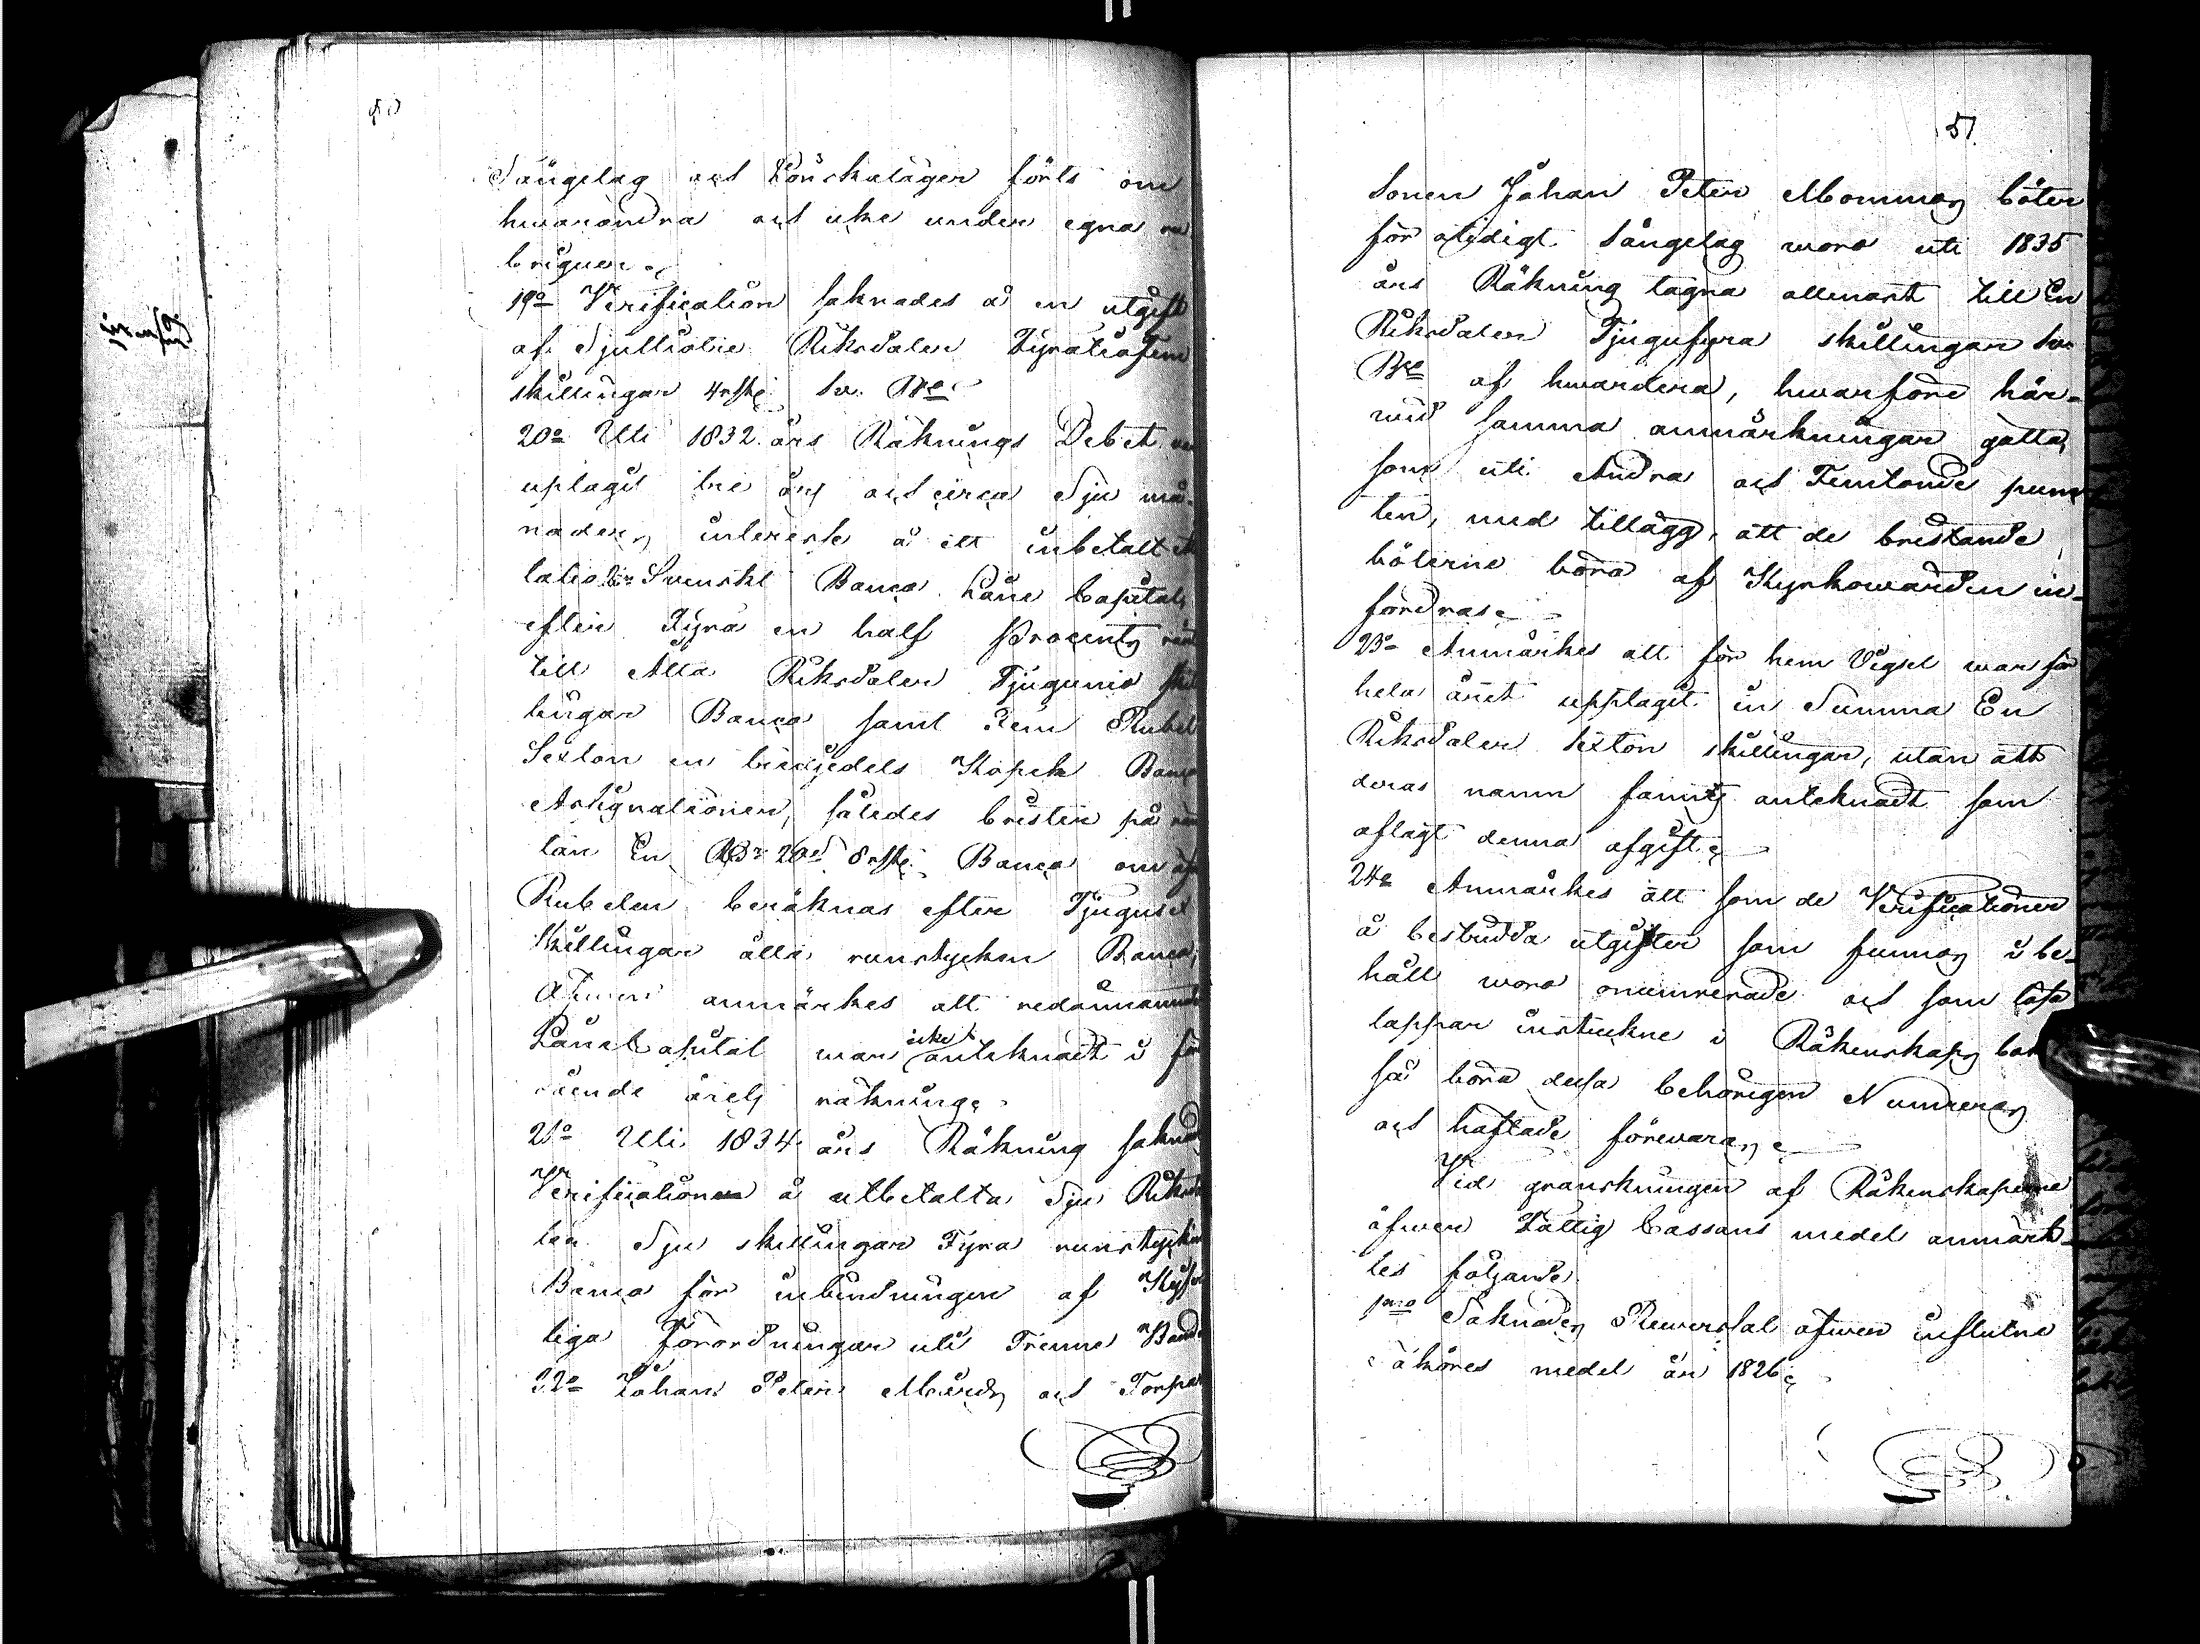 50
Sängelag och Lönskaläger förts om
hwarandra och icke under egna ru
briquer.
19o Verification saknades å en utgift
af Sjuttiotre Riksdaler Fyratiofem
skillingar 4 rst. Sv. Bco
20o Uti 1832 års Räknings Debet
uptagit tre års och circa Sju må-
naders interesse å ett inbetalt
Svenskt Banco Låne Capital,
efter Fyra en half Procents
till Åtta Riksdaler Tjugunio skil
lingar Banco samt Fem Rubel
Sexton en tredjedels Kopek Banco
Assignationer, således brister på rän
tan En Rdr 20 s. 8 rst. Banco om
Rubelen beräknas efter Tjugusex
Skillingar åtta runstycken Banco,
Äfwen anmärkes att redannämnde
Låne Capital war icke antecknadt i före
gående årets räkning.
21o Uti 1834 års Räkning saknades
Verification å utbetalta Sju Riksda
ler Sju skillingar Fyra runstycken
Banco för inbindningen af Kyrko
liga Förordningar uti Trenne Band
22o Johan Peter och Torpare
51
Sonen Johan Peter Mommos böter
för otidigt Sängelag woro uti 1835
års Räkning tagna allenast till En
Riksdaler Tjugufyra skillingar Sv.
Bco af hwardera, hwarföre här-
wid samma anmärkningar gälla,
som uti Andra och Femtonde punk
ten, med tillägg, att de bristande
böterne böra af Kyrkowärden in-
fordras.
23o Anmärkes att för hem Vigsel war för
hela året upptagit in Summa En
Riksdaler Sexton skillingar, utan att
deras namn fanns antecknadt som
aflagt denna afgift.
24o Anmärkes att som de Verificationer
å bestridda utgifter som funnos i be-
håll woro onumrerade och som lösa
lappar instuckne i Räkenskaps bok
så böra dessa behörigen Numreras
och häftade förewaras.
Vid granskningen af Räkenskaperne
öfwer Fattig Cassans medel anmärk-
tes följande
1mo Saknades Rewersal öfwer influtne
åkäres medel år 1826.